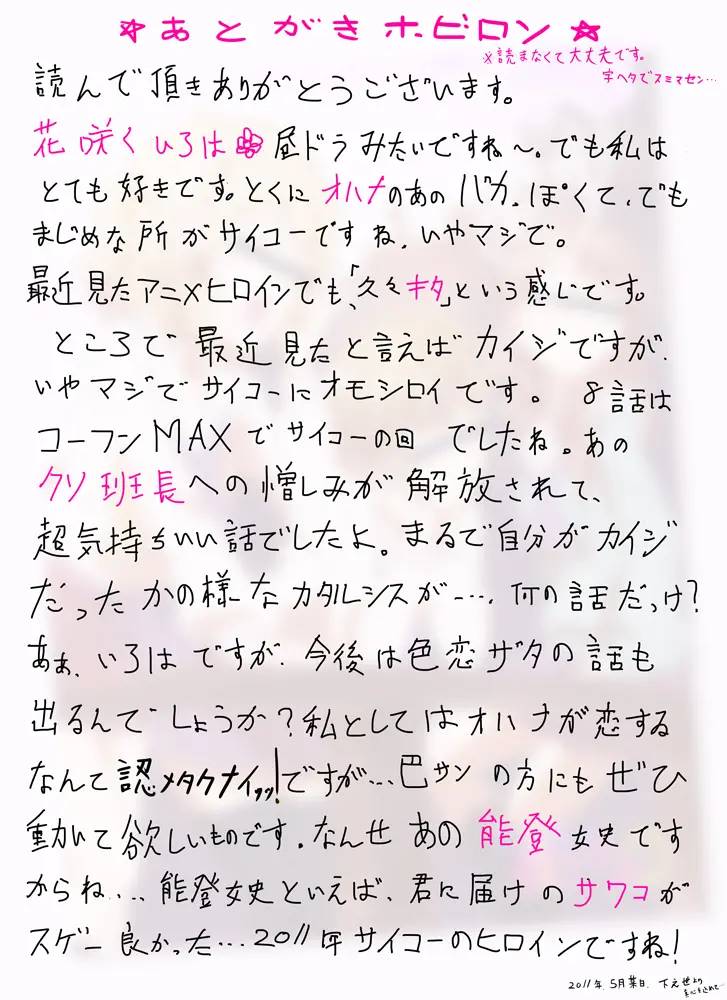 ☆あとがきホビロン☆
※読まなくて大丈夫です。
字ヘタでスミマセン…
読んで頂きありがとうございます。
花咲くいろは 昼ドラみたいですね〜。でも私は
とても好きです。とくにオハナのあのバカっぽくて、でも
まじめな所がサイコーですね、いやマジで。
最近見たアニメヒロインでも、「久々キタ」という感じです。
ところで最近見たと言えばカイジですが、
いやマジでサイコーにオモシロイです。 8話は
コーフンMAXでサイコーの回でしたね。あの
クソ班長への憎しみが解放されて、
超気持ちいい話でしたよ。まるで自分がカイジ
だったかの様なカタルシスが…、何の話だっけ?
あぁ、いろはですが、今後は色恋ザタの話も
出るんでしょうか?私としてはオハナが恋する
なんて認メタクナイッッ!ですが…巴サンの方にもぜひ
動いて欲しいものです。なんせあの能登女史です
からね…、能登女史といえば、君に届けのサワコが
スゲー良かった…2011年サイコーのヒロインですね!
2011年、5月某日、